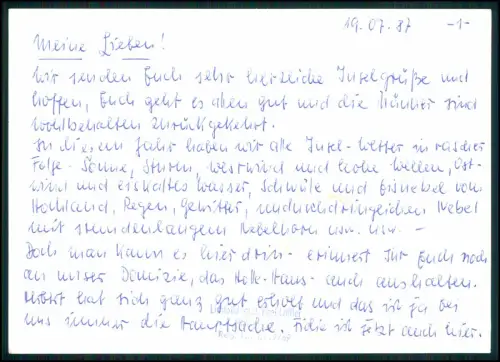 19.07.87 -1-
Meine Lieben!
Wir senden Euch sehr herzliche Inselgrüße und
hoffen, Euch geht es allen gut und die Männer sind
wohlbehalten zurückgekehrt.
In diesem Jahr haben wir alle Insel-Wetter in rascher
Folge - Sonne, Sturm, Westwind und hohe Wellen, Ost-
wind und eiskaltes Wasser, Schwüle und Eisnebel von
Holland, Regen, Gewitter, undurchdringlichen Nebel
mit stundenlangem Nebelhorn usw. usw. -
Doch man kann es hier drin - erinnert Ihr Euch noch
an unser Domizil, das Holl-Haus - auch aushalten.
hat sich ganz gut erholt und das ist ja bei
uns immer die Hauptsache. ist jetzt auch hier.